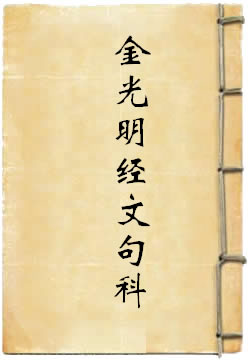 金光明经文句科